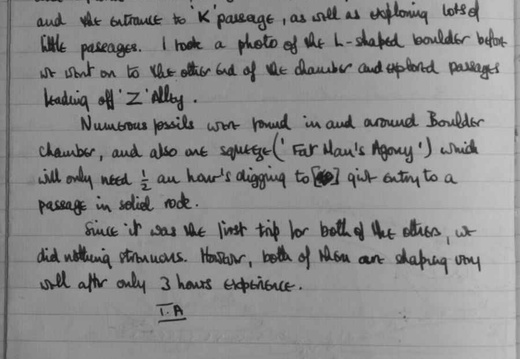 and the entrance to 'K' passage, as well as exploring lots of
little passages. I took a photo of the L-shaped boulder before
we went on to the other end of the chamber and explored passages
leading off 'Z' Alley.
Numerous fossils were found in and around Boulder
Chamber, and also one squeeze ('Fat Man's Agony') which
will only need ½ an hour's digging to give entry to a
passage in solid rock.
Since it was the first trip for both of the others, we
did nothing strenuous. However, both of them are shaping very
well after only 3 hours experience.
I.A